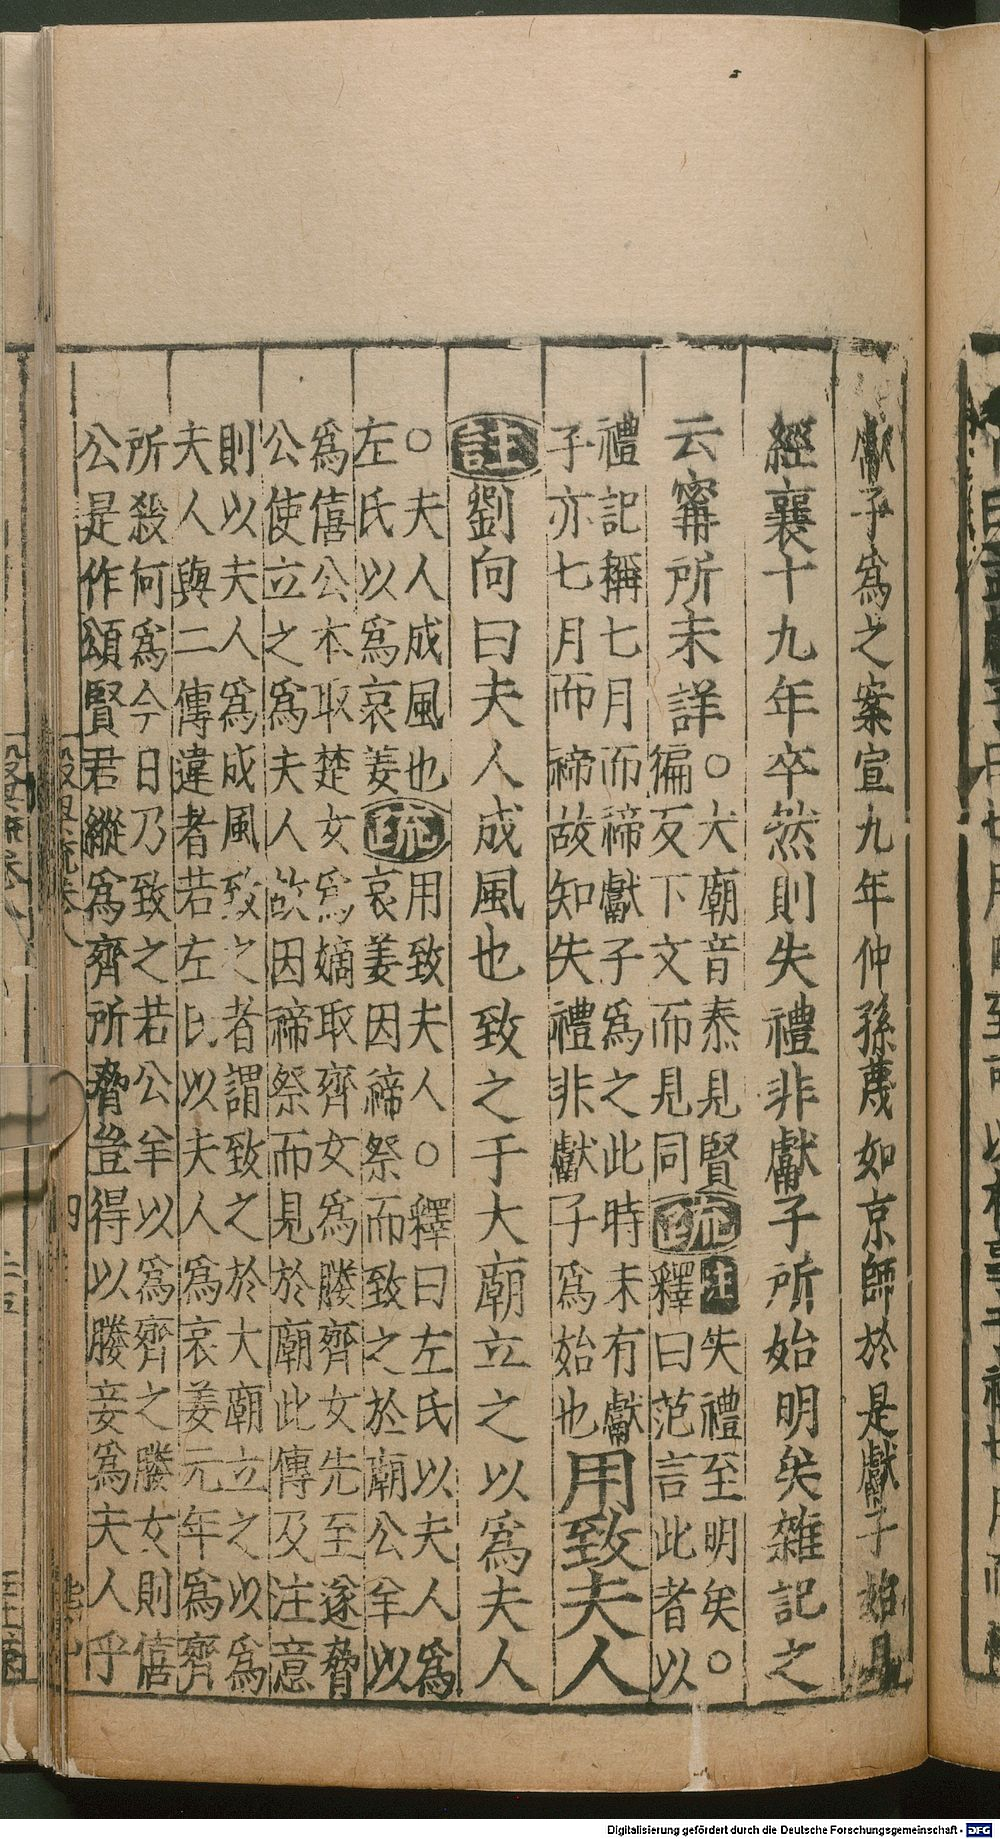 獻子爲之案宣九年仲孫蔑如京師於是獻子始見
經襄十九年卒然則失禮非獻子所始明矣雜記之
云寗所未詳○大廟音泰見賢
徧反下文而見同疏釋曰范言此者以
注失禮至明矣○
禮記稱七月而禘獻子爲之此時未有獻
子亦七月而禘故知失禮非獻子爲始也
用致夫人
註劉向曰夫人成風也致之于大廟立之以爲夫人
○夫人成風也疏用致夫人○釋曰左氏以夫人爲
左氏以爲哀姜哀姜因禘祭而致之於廟公羊以
爲僖公本取楚女爲嫡取齊女爲媵齊女先至遂脅
公使立之爲夫人故因禘祭而見於廟此傳及注意
則以夫人爲成風致之者謂致之於大廟立之以爲
夫人與二傳違者若左氏以夫人爲哀姜元年爲齊
所殺何爲今日乃致之若公羊以爲齊之媵女則僖
公是作頌賢君縱爲齊所脅豈得以媵妾爲夫人乎
Digitalisierung gefördert durch die Deutsche Forschungsgemeinschaft - DFG